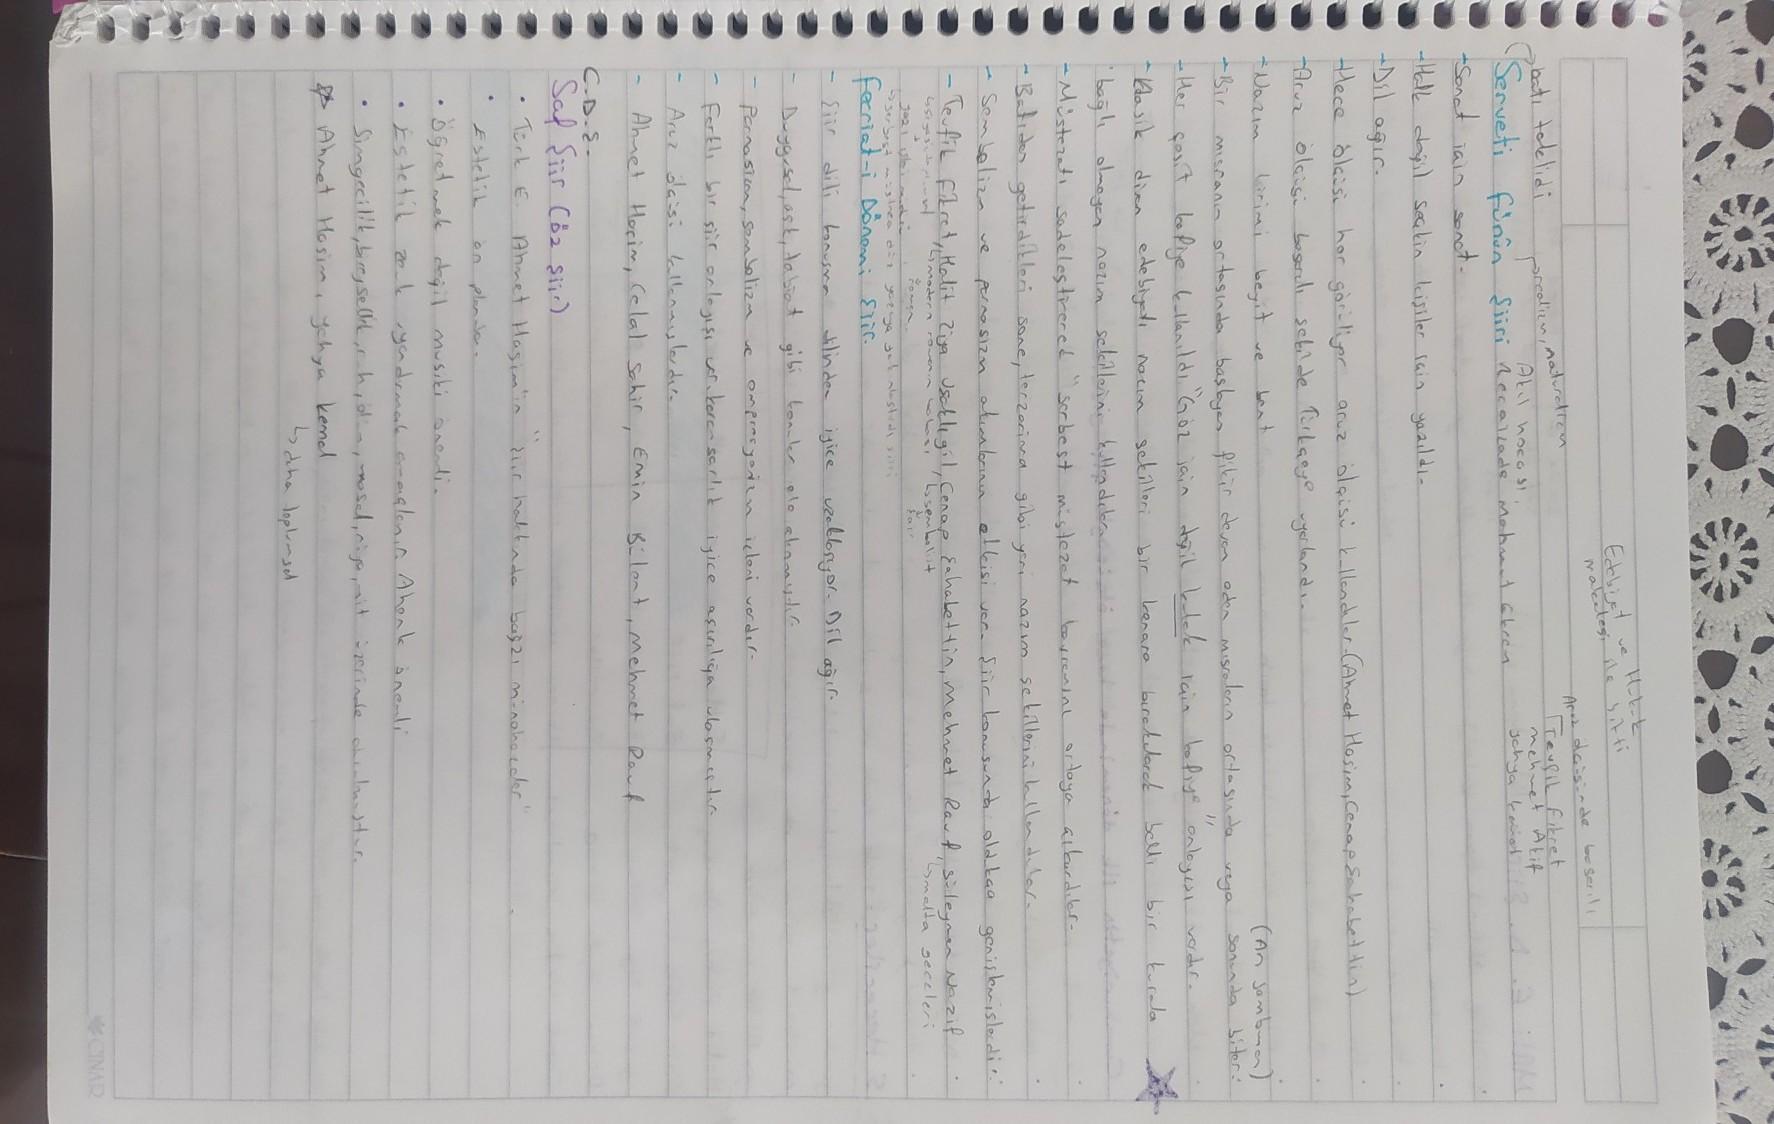 Edebiyat ve Hukuk
makalesi ile bitti
Aruz ölçüsünde başarılı
Tevfik Fikret
Mehmet Akif
Yahya Kemal
batı taklidi
realizm, natüralizm
Akıl hocası
Serveti Fünûn Şiiri Recaizade Mahmut Ekrem
- Sanat için sanat.
- Halk değil seçkin kişiler için yazıldı.
- Dil ağır.
- Hece ölçüsü hor görülüyor aruz ölçüsü kullandılar. (Ahmet Haşim, Cenap Şahabettin)
- Aruz ölçüsü başarılı şekilde Türkçeye uyarlandı.
- Nazım birimi beyit ve bent
(Anjambman)
- Bir mısranın ortasında başlayan fikir devam eden mısraların ortasında veya sonunda biter.
- Her çeşit kafiye kullanıldı "Göz için değil kulak için kafiye" anlayışı vardır.
- Klasik divan edebiyatı nazım şekilleri bir kenara bırakılarak belli bir kurala
bağlı olmayan nazım şekillerini kullandılar
- Müstezatı sadeleştirerek "serbest müstezat" kavramını ortaya çıkardılar.
- Batıdan getirdikleri sone, terzarima gibi yeni nazım şekillerini kullandılar.
- Sembolizm ve parnasizm akımlarının etkisi var. Şiir konusunda oldukça genişlemişlerdir.
- Tevfik Fikret, Halit Ziya Uşaklıgil, Cenap Şahabettin, Mehmet Rauf, Süleyman Nazif
↳ modern romanın babası
↳ sembolist
↳ malta geceleri
roman
şair
↳ serbest müstezat düz yazıya yaklaştırdı şiiri
Fecriat-i Dönemi Şiir.
- Şiir dili konuşma dilinden iyice uzaklaşıyor. Dil ağır.
- Duygusal, aşk, tabiat gibi konular ele alınmıştır.
- Parnasizm, sembolizm ve empresyonizm izleri vardır.
- Farklı bir şiir anlayışı var karamsarlık iyice aşırılığa ulaşmıştır.
- Aruz ölçüsi kullanmışlardır.
- Ahmet Haşim, Celal Sahir, Emin Bülent, Mehmet Rauf
C.D.E.
Saf Şiir (Öz Şiir)
• Türk E. Ahmet Haşim'in "şiir hakkında bazı mülahazalar"
• Estetik ön planda.
• Öğretmek değil musiki önemli.
• Estetik zevk uyandırmak amaçlanır. Ahenk önemli
• Simgecilik, bireysellik, ruh, ölüm, masal, rüya, mit üzerinde durulmuştur.
☆ Ahmet Haşim, Yahya Kemal
↳ daha toplumsal
ÇINAR